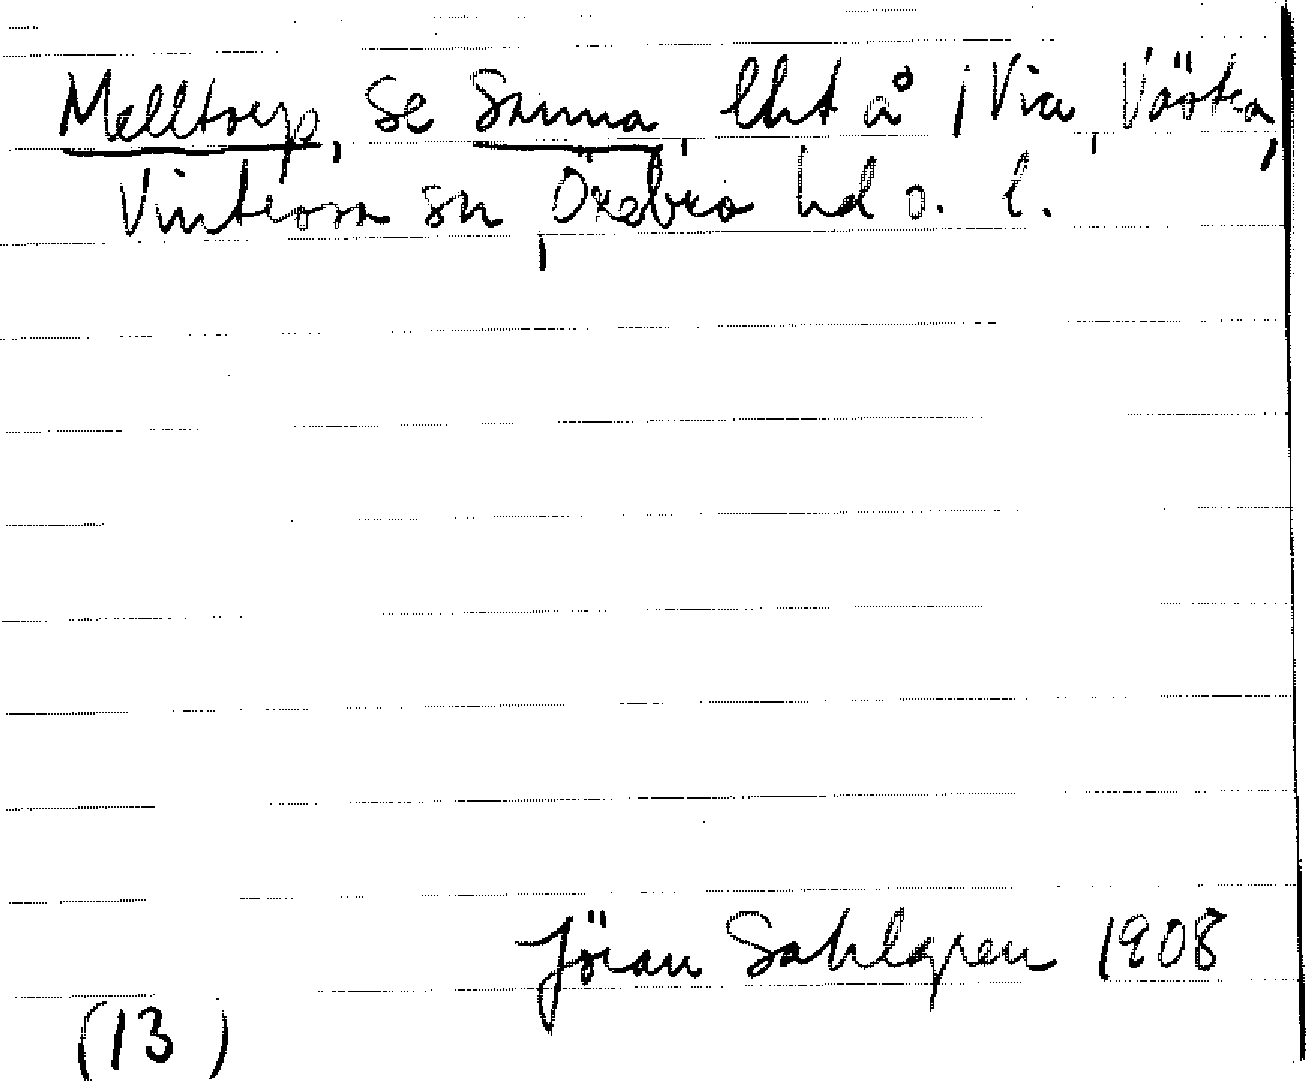 Melltorp, se Sanna, lht å 1 Via, Västra
Vintrosa sn, Örebro hd o. l.
Jöran Sahlgren 1908
(13)